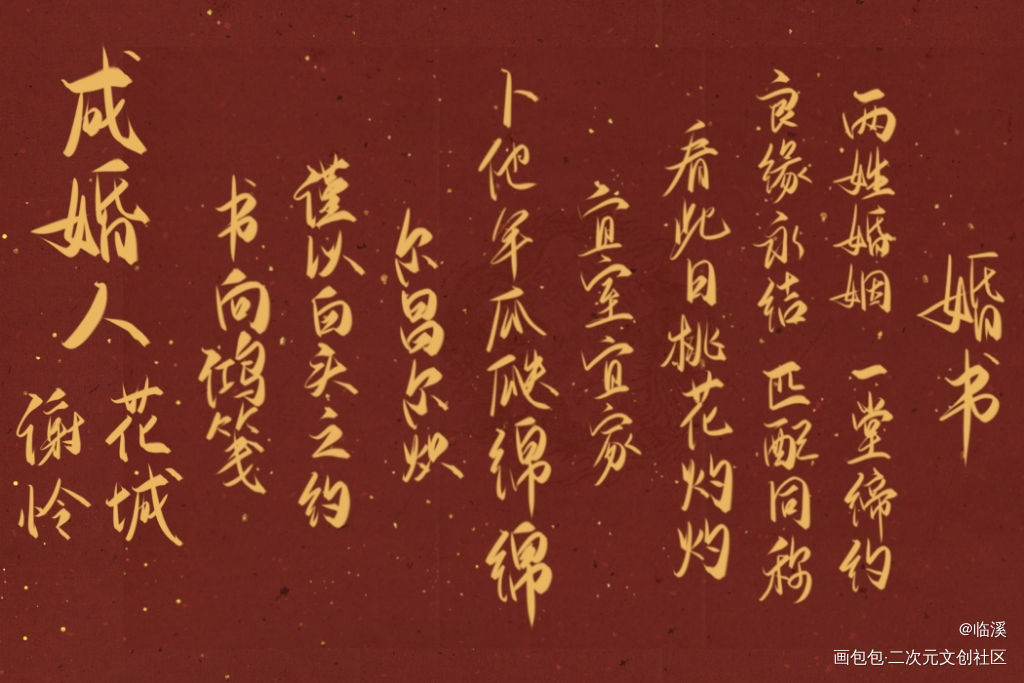 婚书
两姓婚姻 一堂缔约
良缘永结 匹配同称
看此日桃花灼灼
宜室宜家
卜他年瓜瓞绵绵
尔昌尔炽
谨以白头之约
书向鸿笺
成婚人
花城
谢怜
@临溪
画包包·二次元文创社区